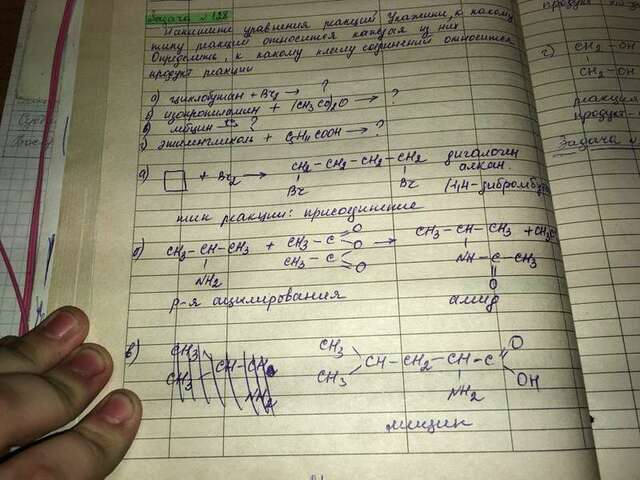 Задача № 128
Напишите уравнения реакций. Укажите, к какому
типу реакций относится каждая из них.
Определить, к какому классу соединений относится
продукт реакции
а) циклобутан + Br2 → ?
б) изопропиламин + (CH3CO)2O → ?
в) лейцин t°→ ?
г) этиленгликоль + C5H11COOH → ?
а) □ + Br2 → CH2-CH2-CH2-CH2 дигалоген
Br Br алкан.
(1,4-дибромбу
тип реакции: присоединение
б) CH3-CH-CH3 + CH3-C O → CH3-CH-CH3 + CH3
O
NH2 CH3-C O NH-C-CH3
O
р-я ацилирования амид
в) CH3 CH-CH2 CH3 CH-CH2-CH-C O
CH3 NH2 CH3 NH2 OH
CH2-OH
CH2-OH
реакция
продукт
Задача